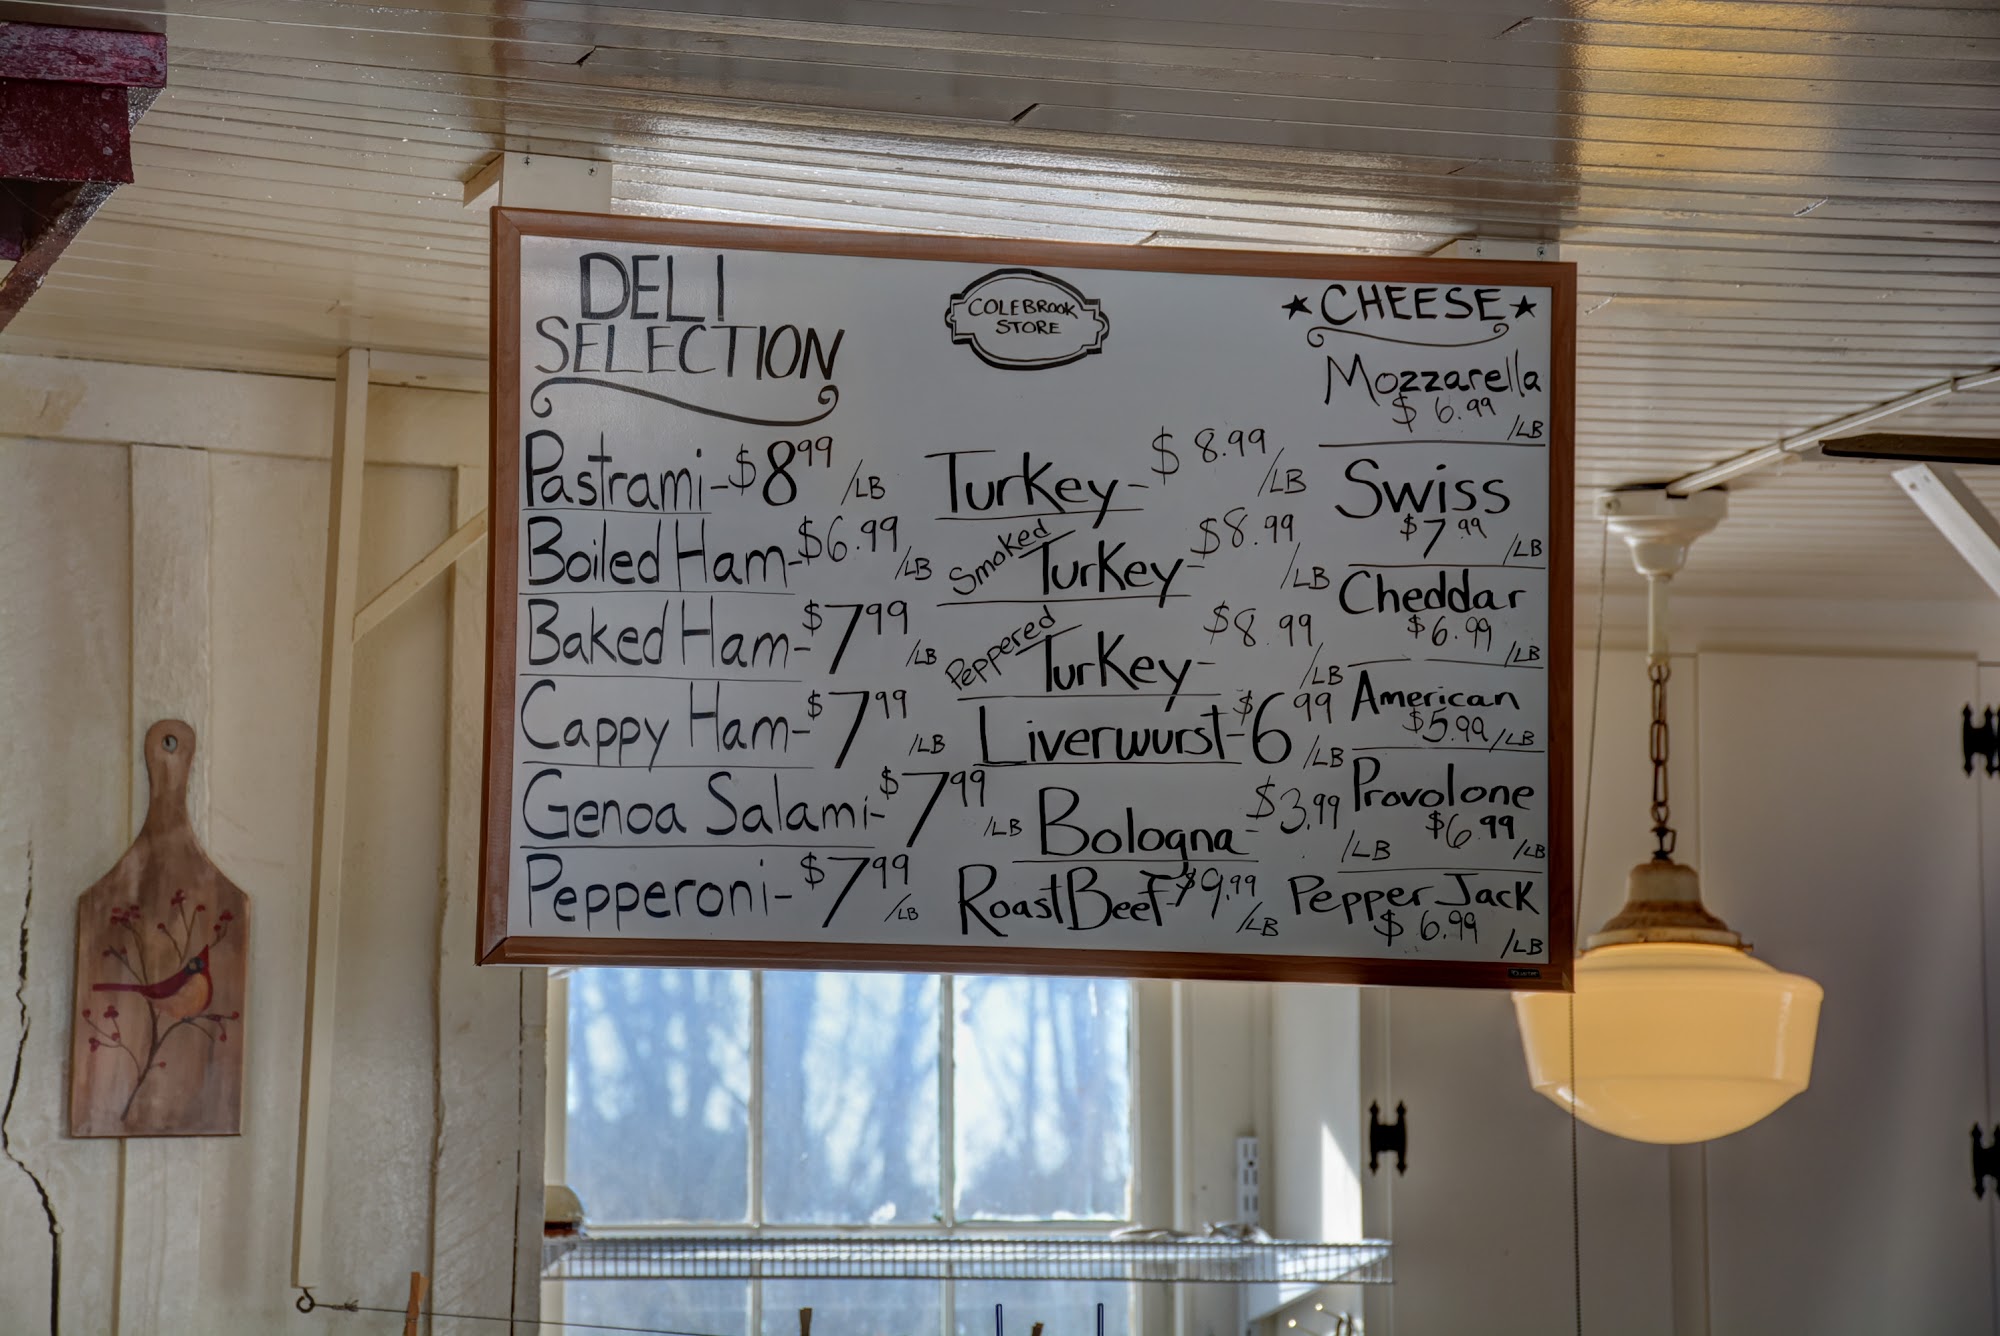 DELI
SELECTION
Pastrami-$8.99/LB
Boiled Ham-$6.99/LB
Baked Ham-$7.99/LB
Cappy Ham-$7.99/LB
Genoa Salami-$7.99/LB
Pepperoni-$7.99/LB
COLEBROOK
STORE
Turkey-$8.99/LB
Smoked Turkey-$8.99/LB
Peppered Turkey-$8.99/LB
Liverwurst-$6.99/LB
Bologna-$3.99/LB
Roast Beef-$9.99/LB
★CHEESE★
Mozzarella
$6.99/LB
Swiss
$7.99/LB
Cheddar
$6.99/LB
American
$5.99/LB
Provolone
$6.99/LB
Pepper Jack
$6.99/LB